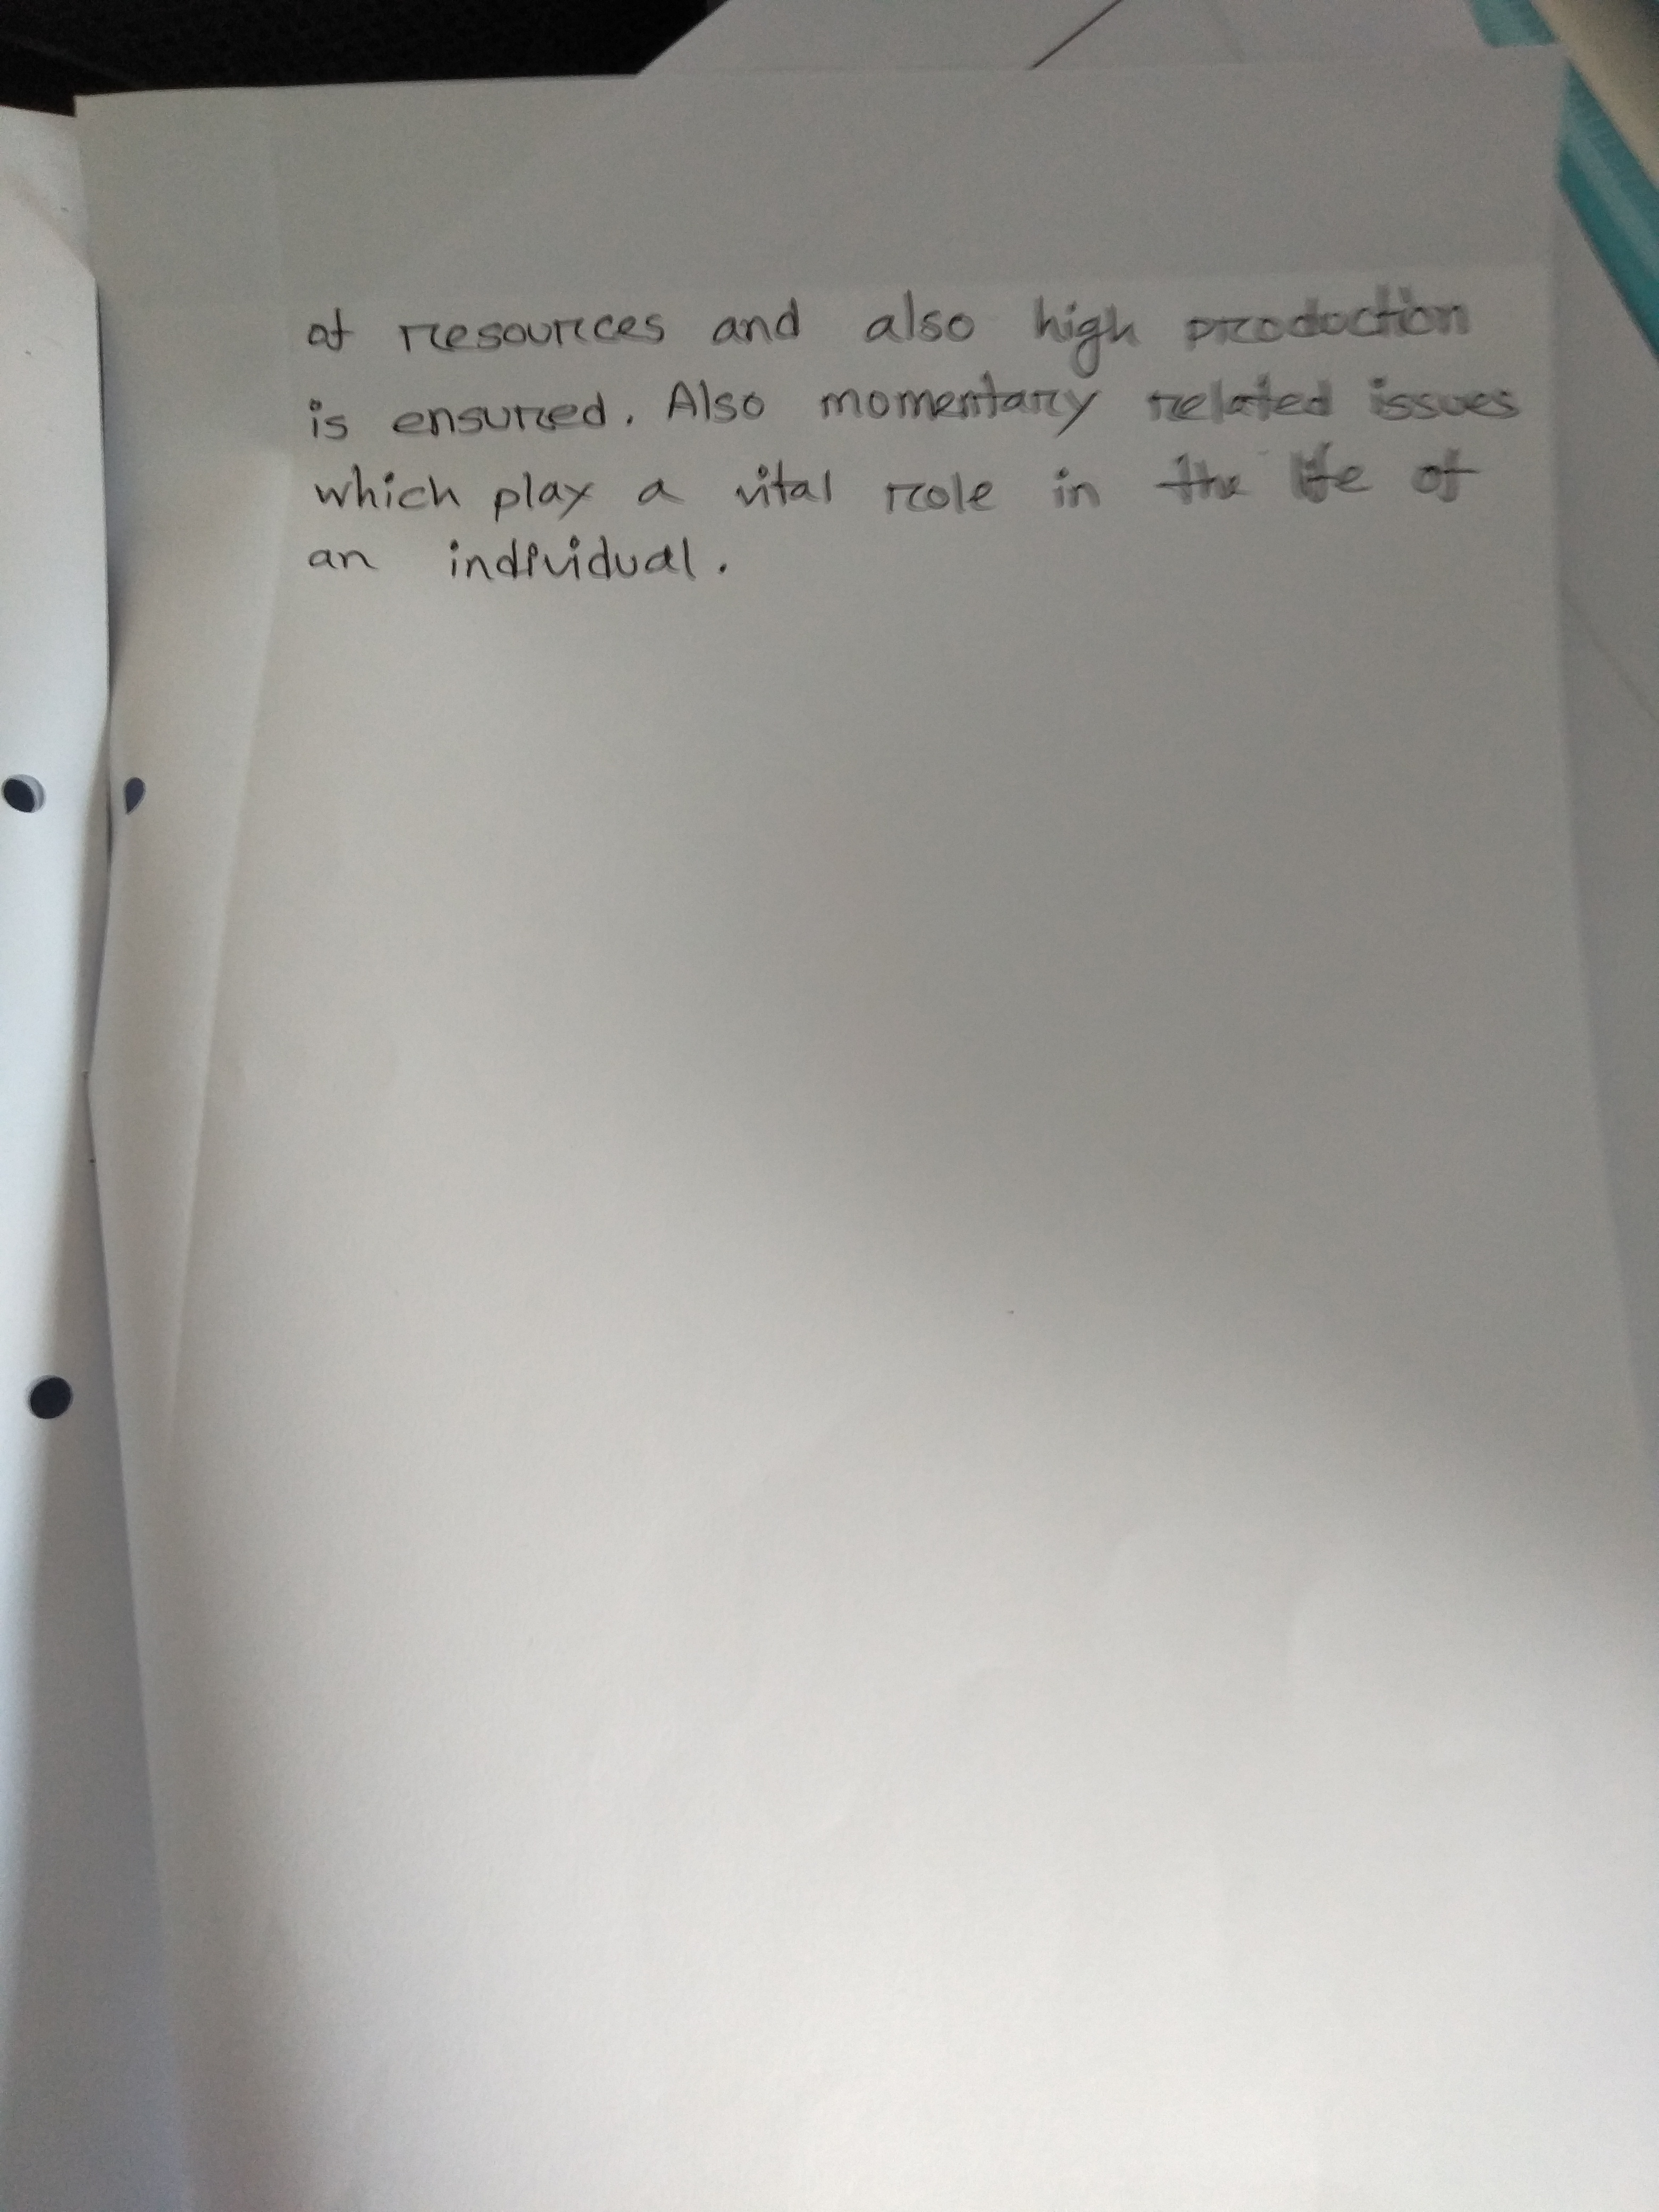 of resources and also high production
is ensured. Also momentary related issues
which play a vital role in the life of
an individual.